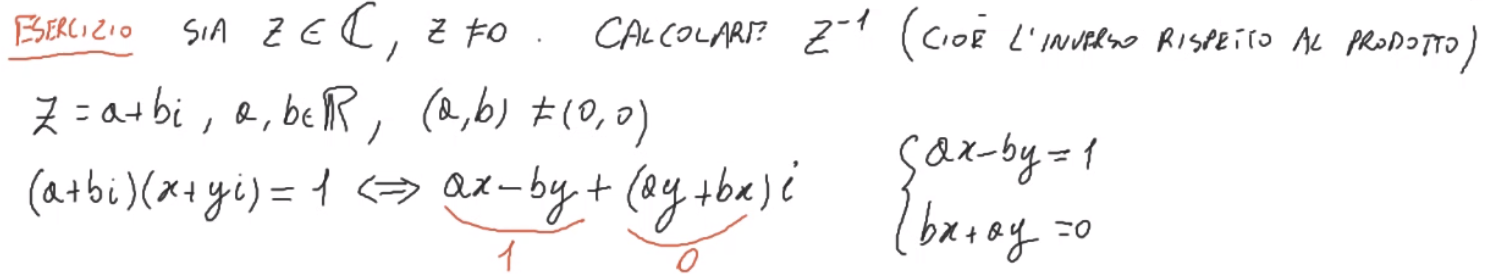 ESERCIZIO SIA Z ∈ ℂ, Z ≠ 0 . CALCOLARE Z⁻¹ (CIOÈ L'INVERSO RISPETTO AL PRODOTTO)
Z = a+bi , a, b ∈ ℝ, (a,b) ≠ (0,0)
(a+bi)(x+yi) = 1 ⟺ ax-by + (ay+bx)i
1 0
{ ax-by = 1
bx+ay = 0